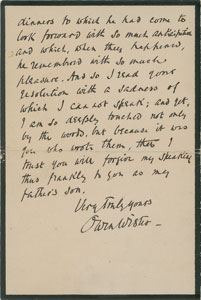 dinners to which he had come to
look forward with so much anticipation
and which, when they happened,
he remembered with so much
pleasure. And so I read your
resolution with a sadness of
which I cannot speak; and yet,
I am so deeply touched not only
by the words, but because it was
you who wrote them, that I
trust you will forgive my speaking
thus frankly to you as my
father's son.
Very truly yours
Owen Wister